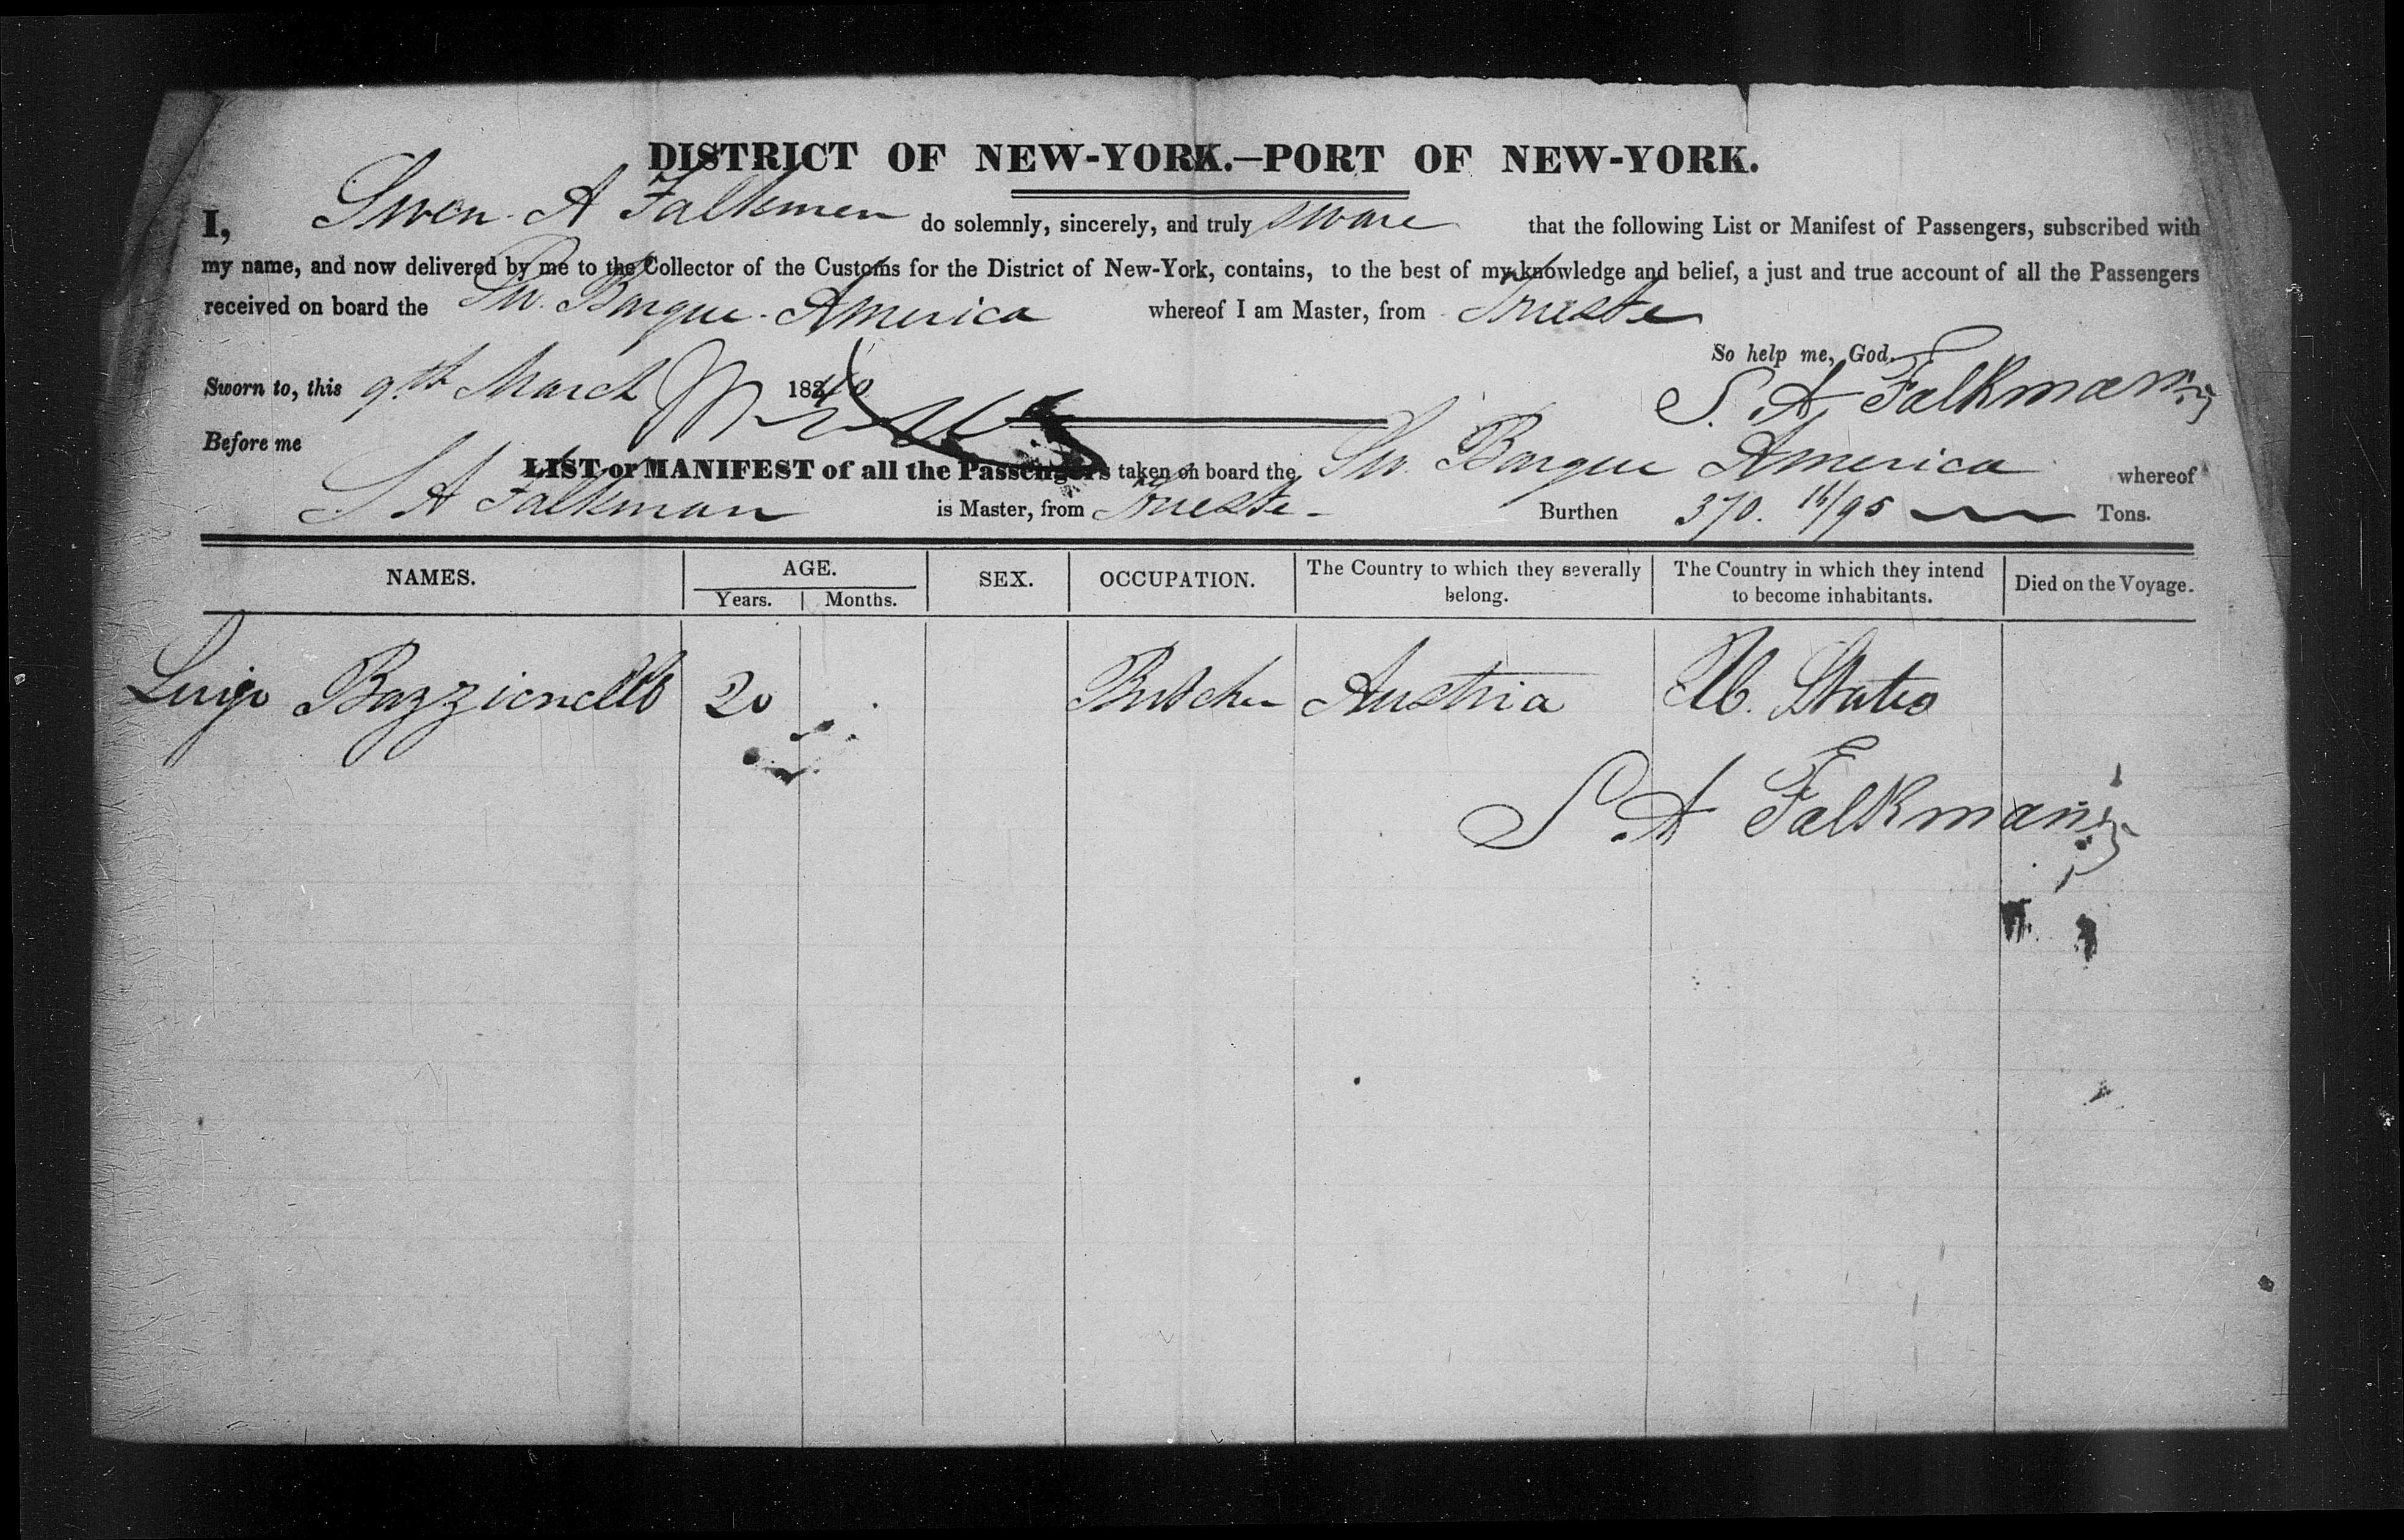 DISTRICT OF NEW-YORK.—PORT OF NEW-YORK.
I, Swen A Falkmen do solemnly, sincerely, and truly sware that the following List or Manifest of Passengers, subscribed with
my name, and now delivered by me to the Collector of the Customs for the District of New-York, contains, to the best of my knowledge and belief, a just and true account of all the Passengers
received on board the Sw. Barque America whereof I am Master, from Trieste
So help me, God.
Sworn to, this 9th March 1840 S. A. Falkman
Before me
LIST or MANIFEST of all the Passengers taken on board the Sw. Barque America whereof
S A Falkman is Master, from Trieste - Burthen 370. /95 Tons.
NAMES. AGE. SEX. OCCUPATION. The Country to which they severally belong. The Country in which they intend to become inhabitants. Died on the Voyage.
Years. Months.
Luigi 20 Butcher Austria U. States
S. A Falkman